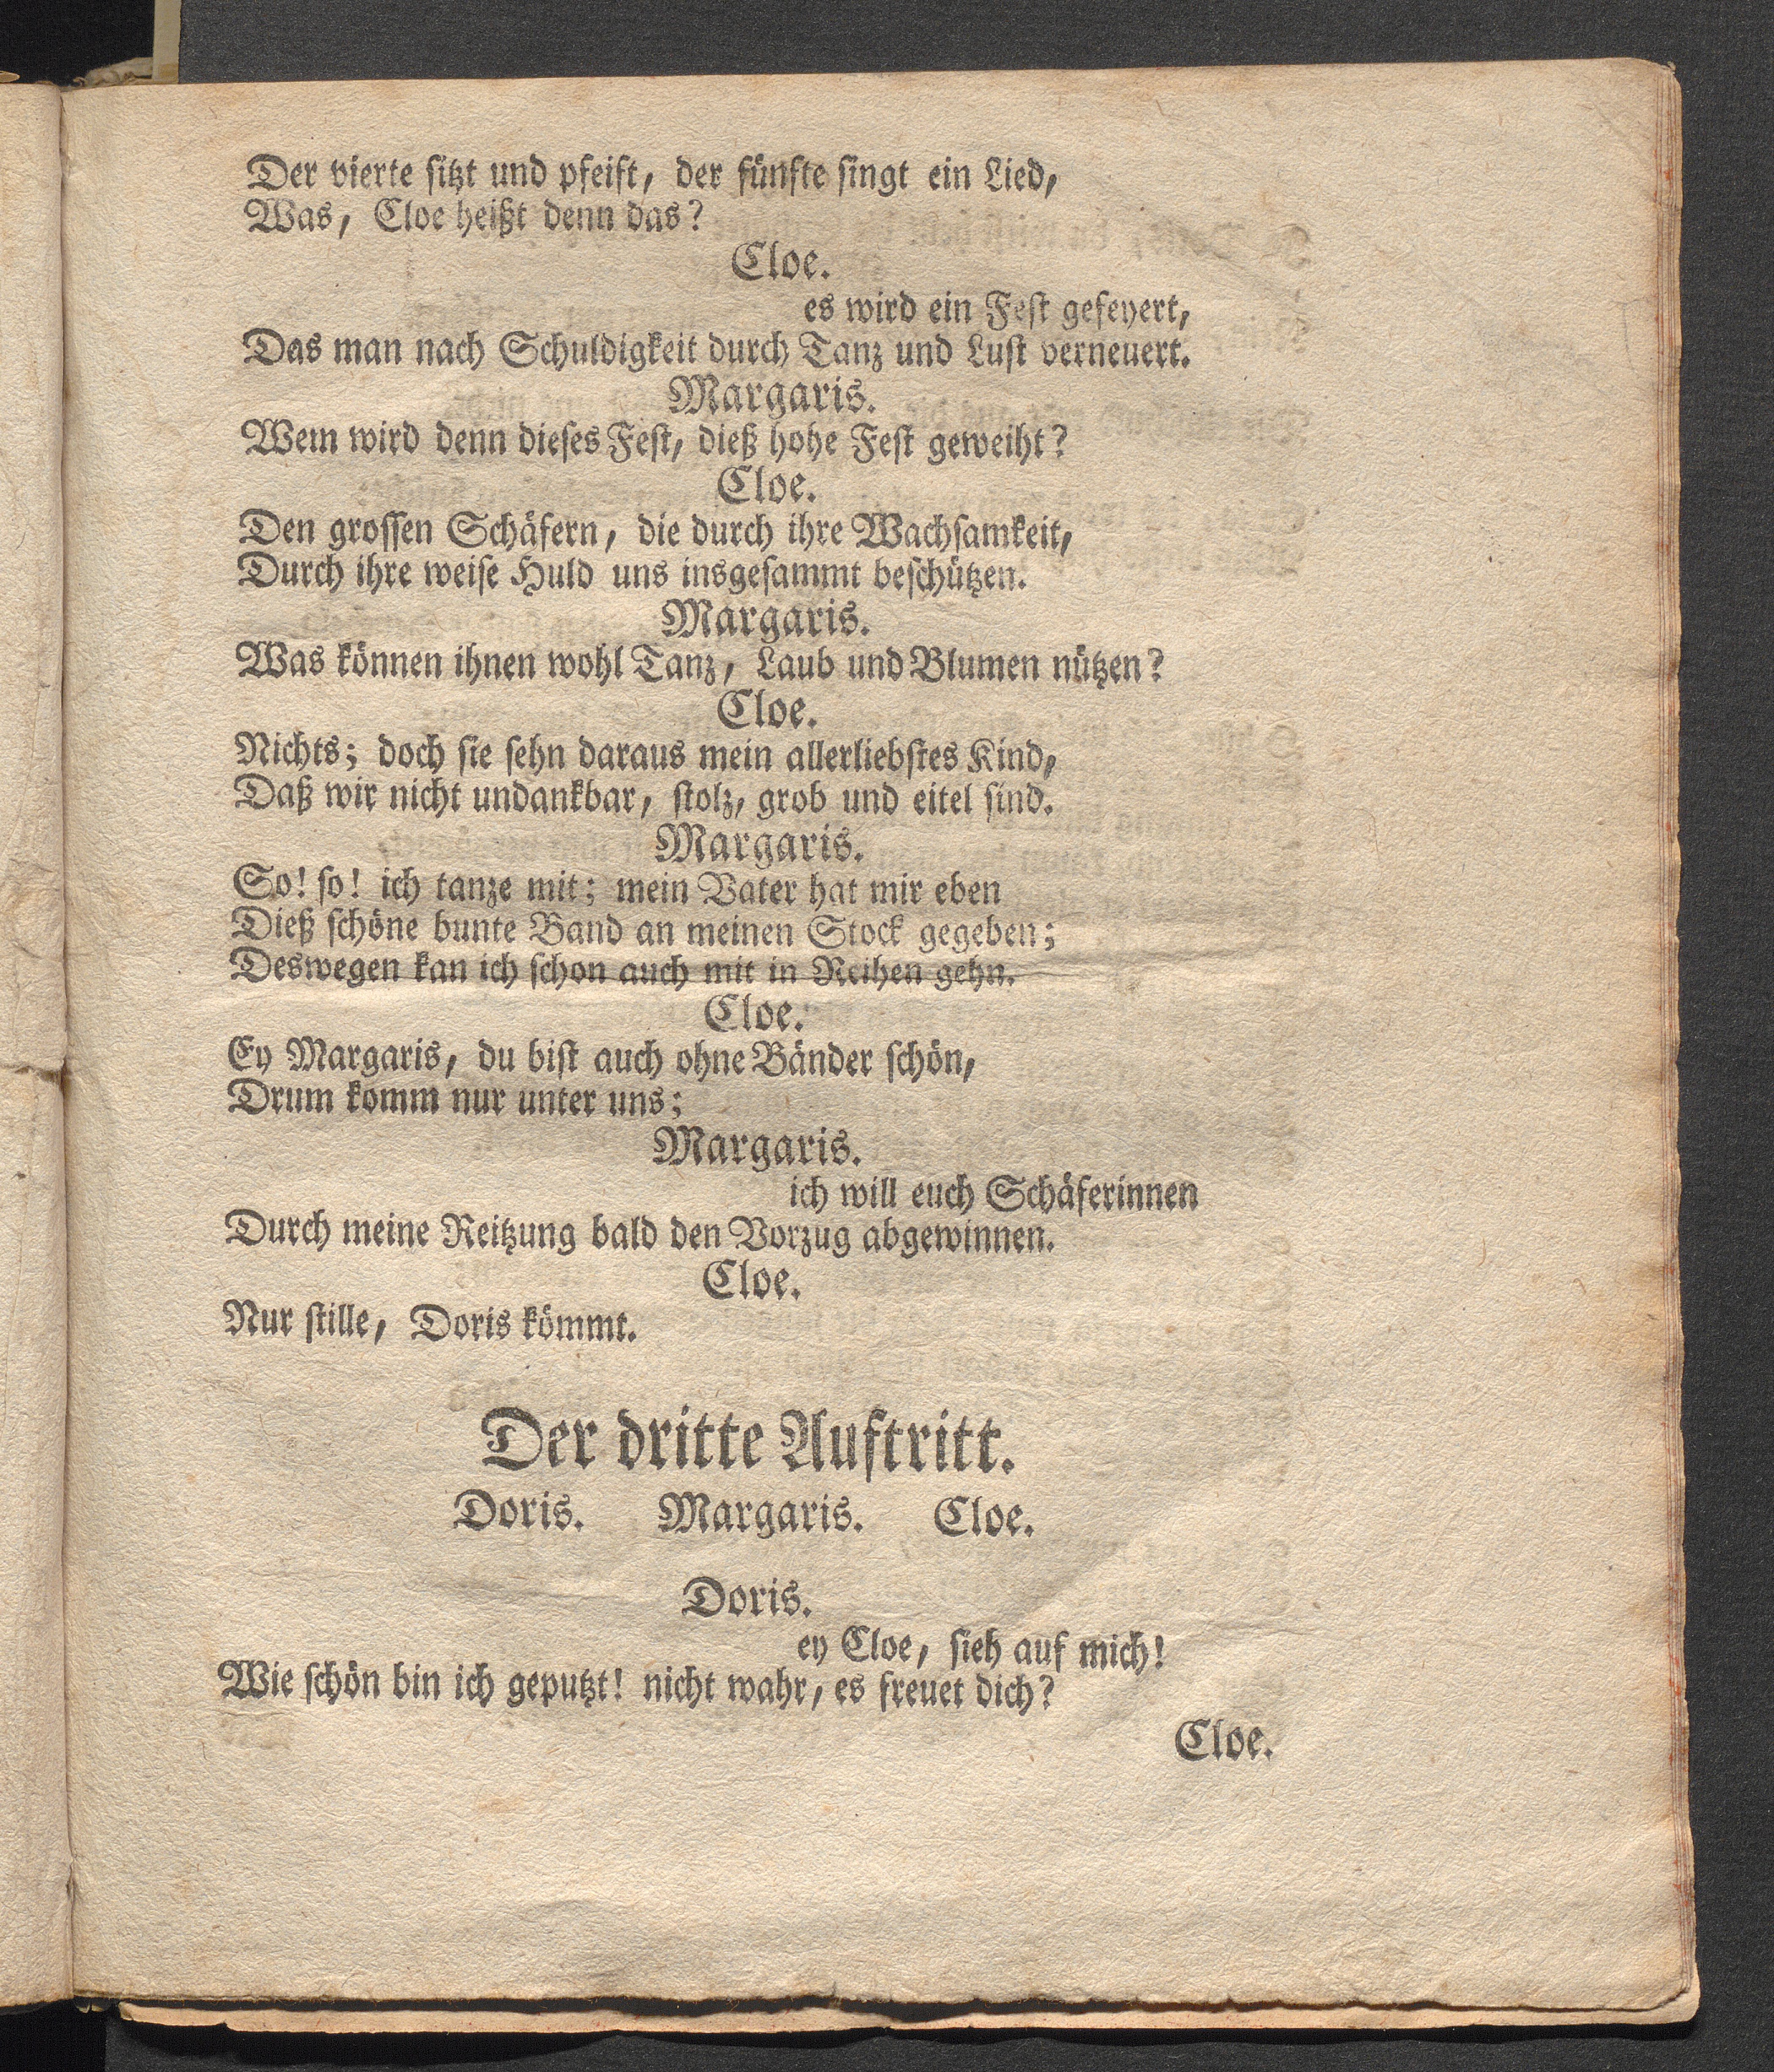 Der vierte ſitzt und pfeift, der fünfte ſingt ein Lied,
Was, Cloe heißt denn das?
Cloe.
es wird ein Feſt gefeyert,
Das man nach Schuldigkeit durch Tanz und Luſt verneuert.
Margaris.
Wem wird denn dieſes Feſt, dieß hohe Feſt geweiht?
Cloe.
Den groſſen Schäfern, die durch ihre Wachſamkeit,
Durch ihre weiſe Huld uns insgeſammt beſchützen.
Margaris.
Was können ihnen wohl Tanz, Laub und Blumen nützen?
Cloe.
Nichts; doch ſie ſehn daraus mein allerliebſtes Kind,
Daß wir nicht undankbar, ſtolz, grob und eitel ſind.
Margaris.
So! ſo! ich tanze mit; mein Vater hat mir eben
Dieß ſchöne bunte Band an meinen Stock gegeben;
Deswegen kan ich ſchon auch mit in Reihen gehn.
Cloe.
Ey Margaris, du biſt auch ohne Bänder ſchön,
Drum komm nur unter uns;
Margaris.
ich will euch Schäferinnen
Durch meine Reitzung bald den Vorzug abgewinnen.
Cloe.
Nur ſtille, Doris kömmt.
Der dritte Auftritt.
Doris. Margaris. Cloe.
Doris.
ey Cloe, ſieh auf mich!
Wie ſchön bin ich geputzt! nicht wahr, es freuet dich?
Cloe.